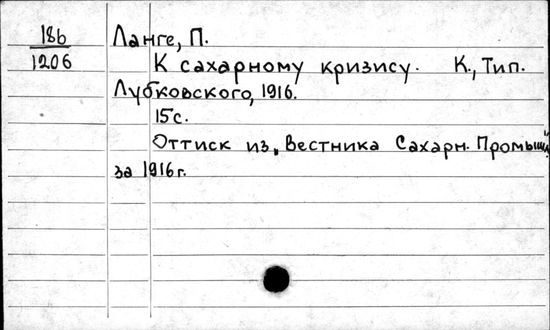 186 Ланге, П.
1206 К сахарному кризису. К., Тип.
Лубковского, 1916.
15 с.
Оттиск из „Вестника Сахарн. Промышл."
за 1916 г.